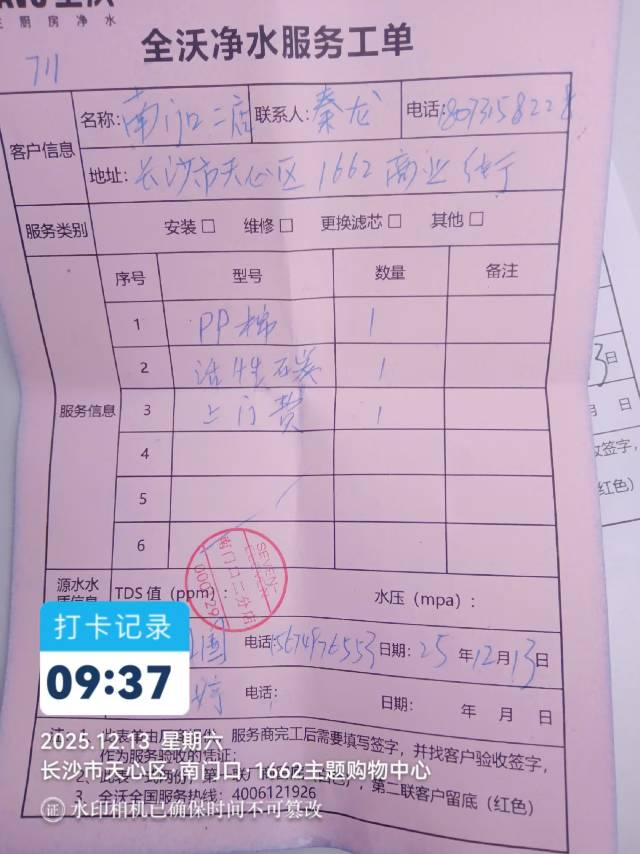 主厨房净水
全沃净水服务工单
711
客户信息
名称: 南门口二店 联系人: 秦龙 电话: 18073158228
地址: 长沙市天心区1662商业
服务类别 安装□ 维修□ 更换滤芯□ 其他□
服务信息
序号 型号 数量 备注
1 PP棉 1
2 活性碳 1
3 上门费 1
4
5
6
SEVEN-
南门口二分店
源水水
TDS 值（ppm）: 水压（mpa）:
电话: 15674976553 日期: 25 年 12 月 13 日
电话: 日期: 年 月 日
服务商完工后需要填写签字，并找客户验收签字，
作为服务验收的凭证;
第二联客户留底（红色）
3、全沃全国服务热线: 4006121926
日
(红色)
打卡记录
09:37
2025.12.13 星期六
长沙市天心区 南门口，1662主题购物中心
证 水印相机已确保时间不可篡改